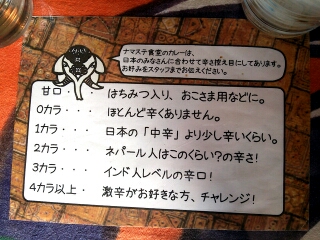 ナマステ食堂のカレーは、
日本のみなさんに合わせて辛さ控え目にしてあります。
お好みをスタッフまでお伝えください。
甘口・・・はちみつ入り、おこさま用などに。
0カラ・・・ほとんど辛くありません。
1カラ・・・日本の「中辛」より少し辛いくらい。
2カラ・・・ネパール人はこのくらい?の辛さ!
3カラ・・・インド人レベルの辛口!
4カラ以上・激辛がお好きな方、チャレンジ!